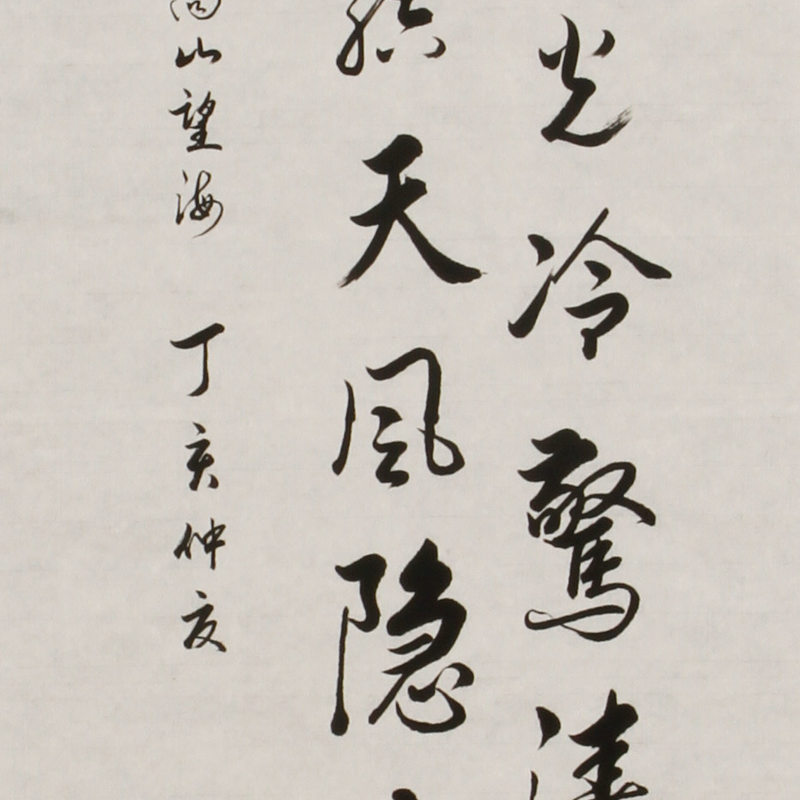 光冷驚
天風隐
山望海 丁亥仲夏